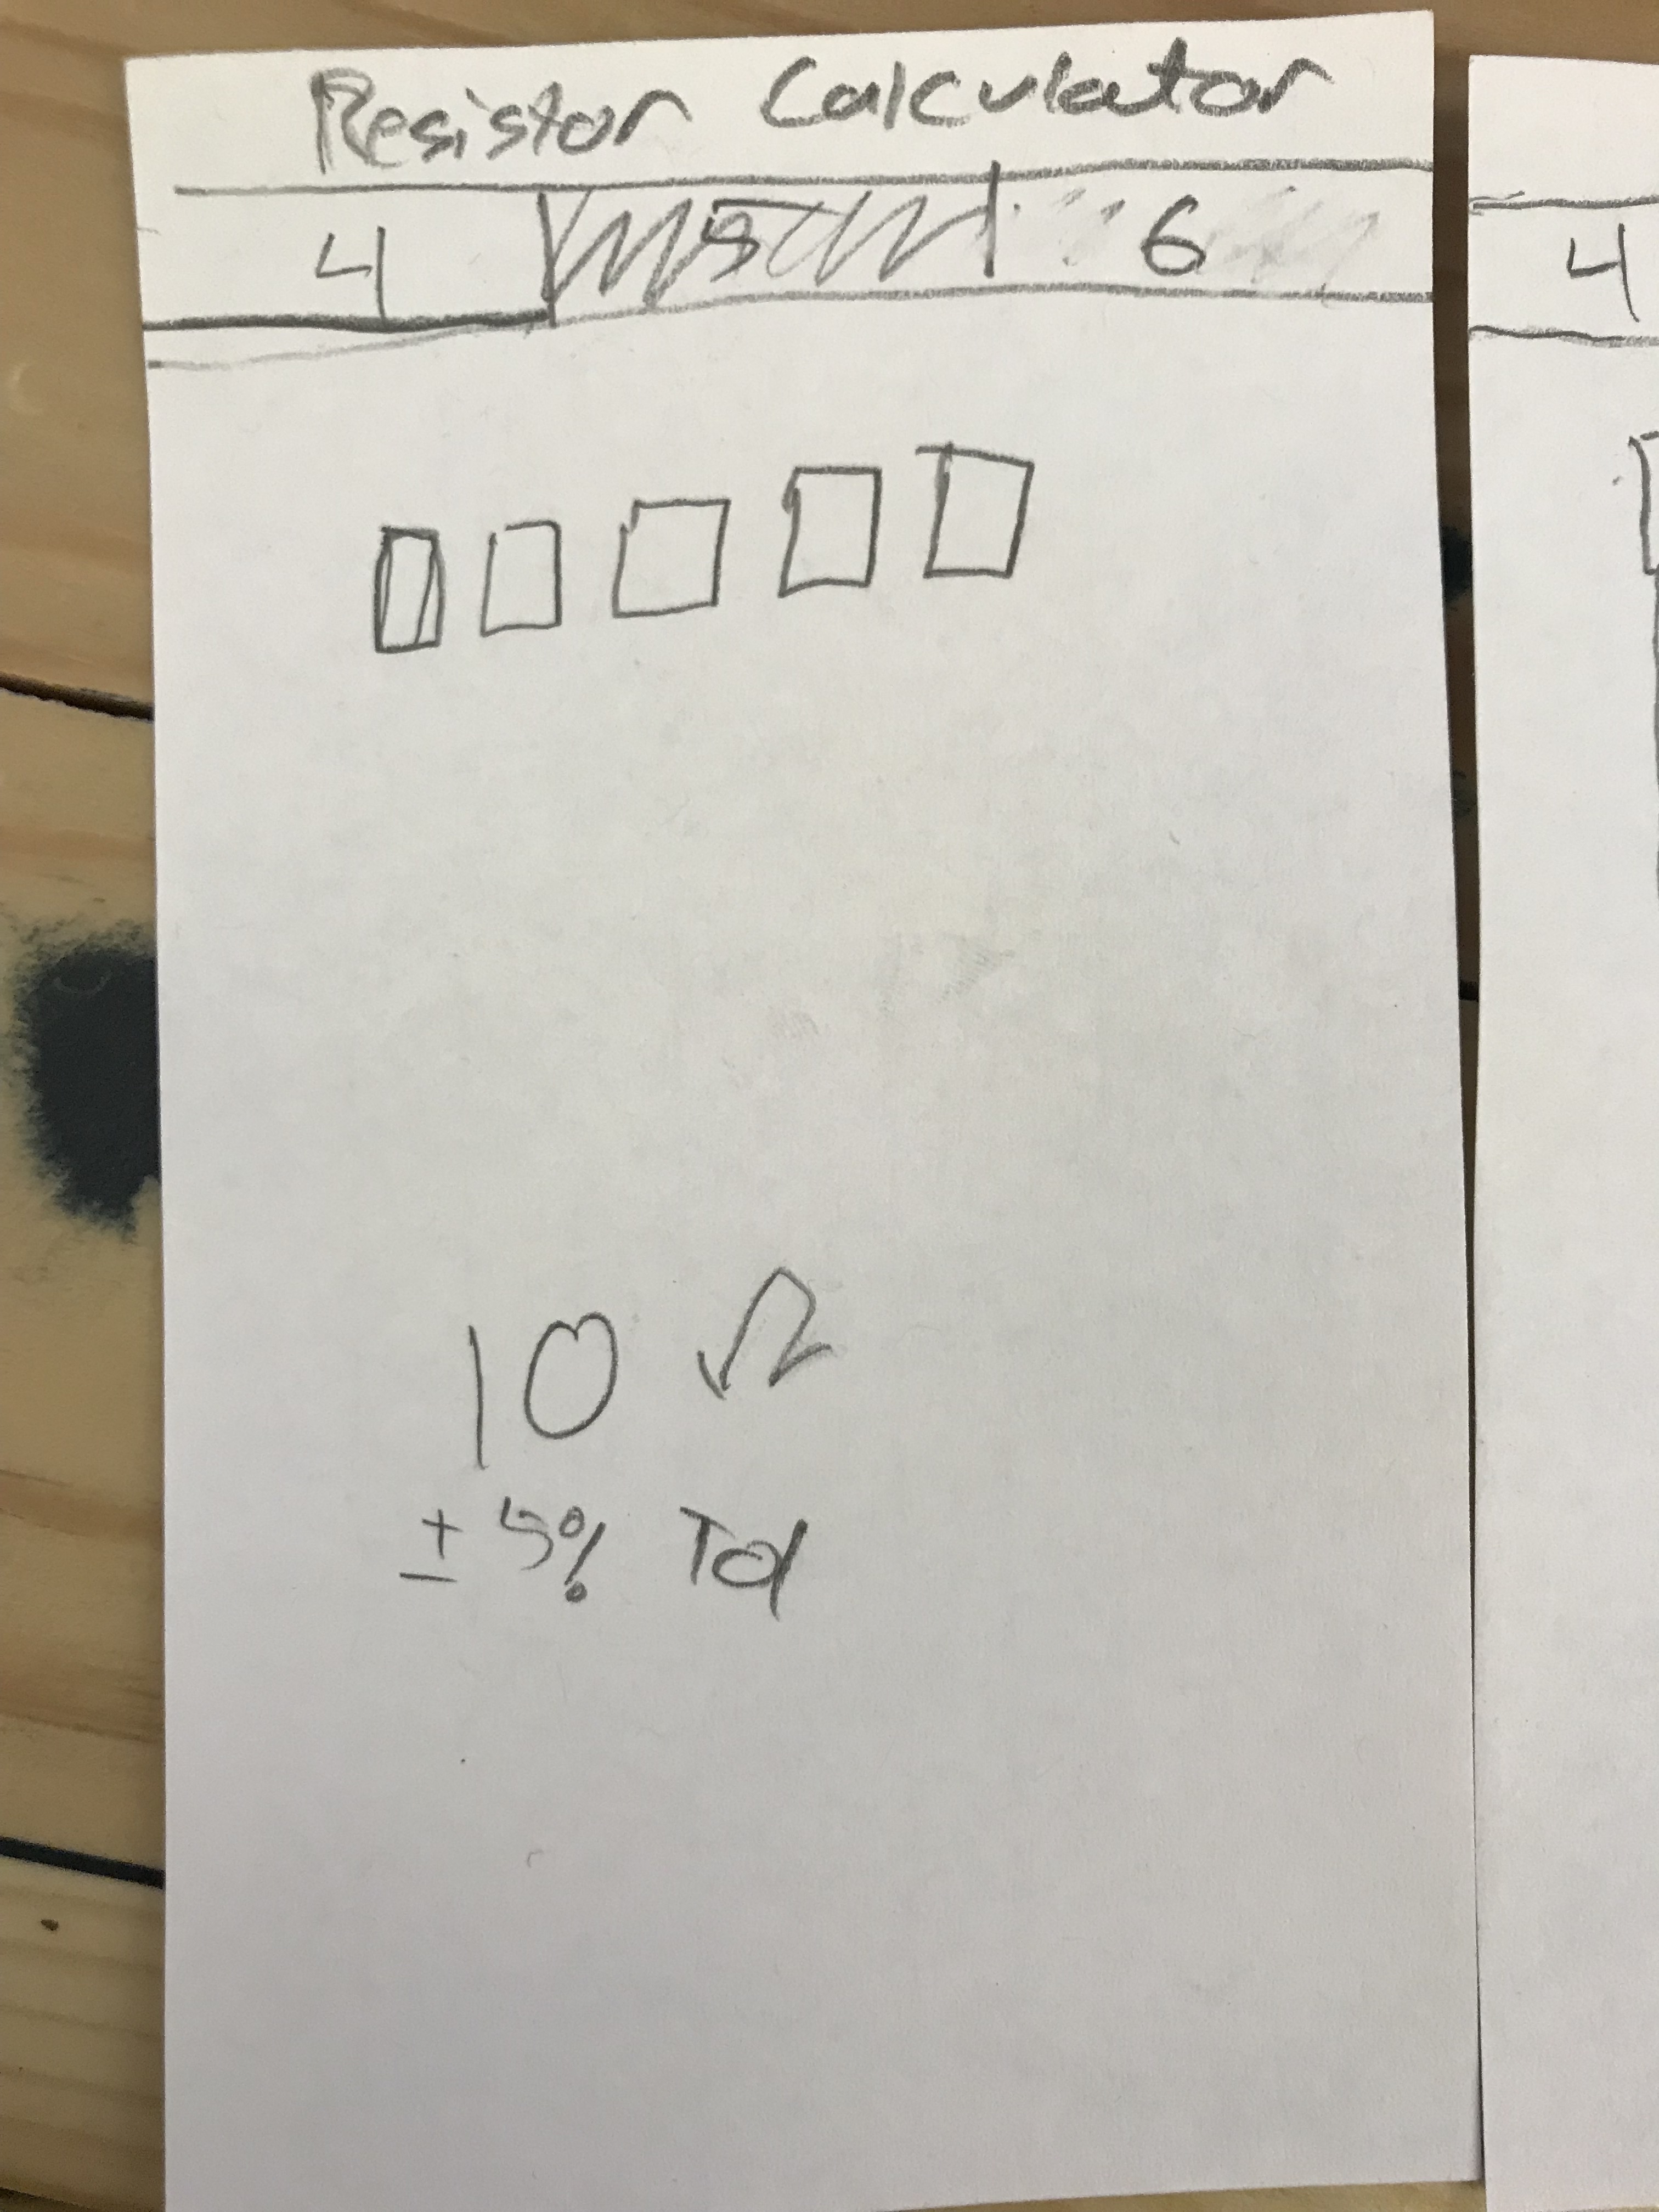 Resistor Calculator
4 5 6
4
10 Ω
± 5% Tol